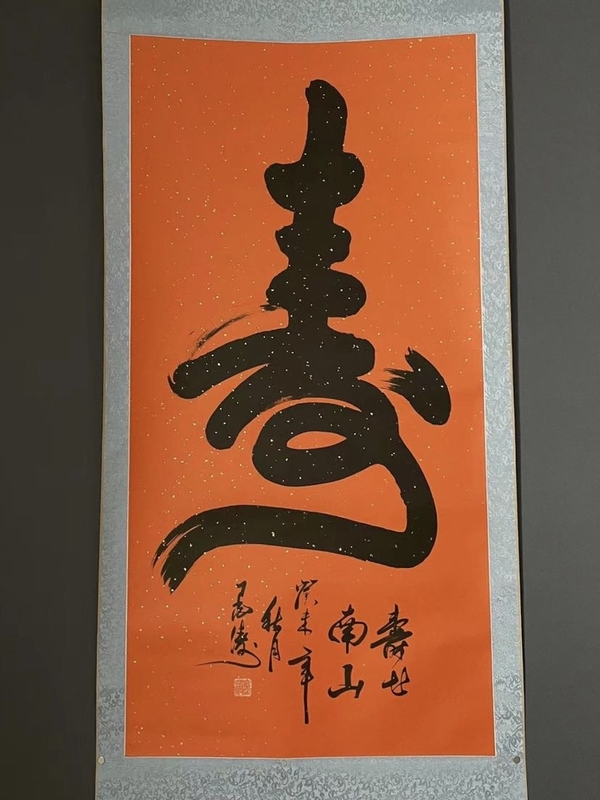 寿
寿比
南山
癸未年
秋月